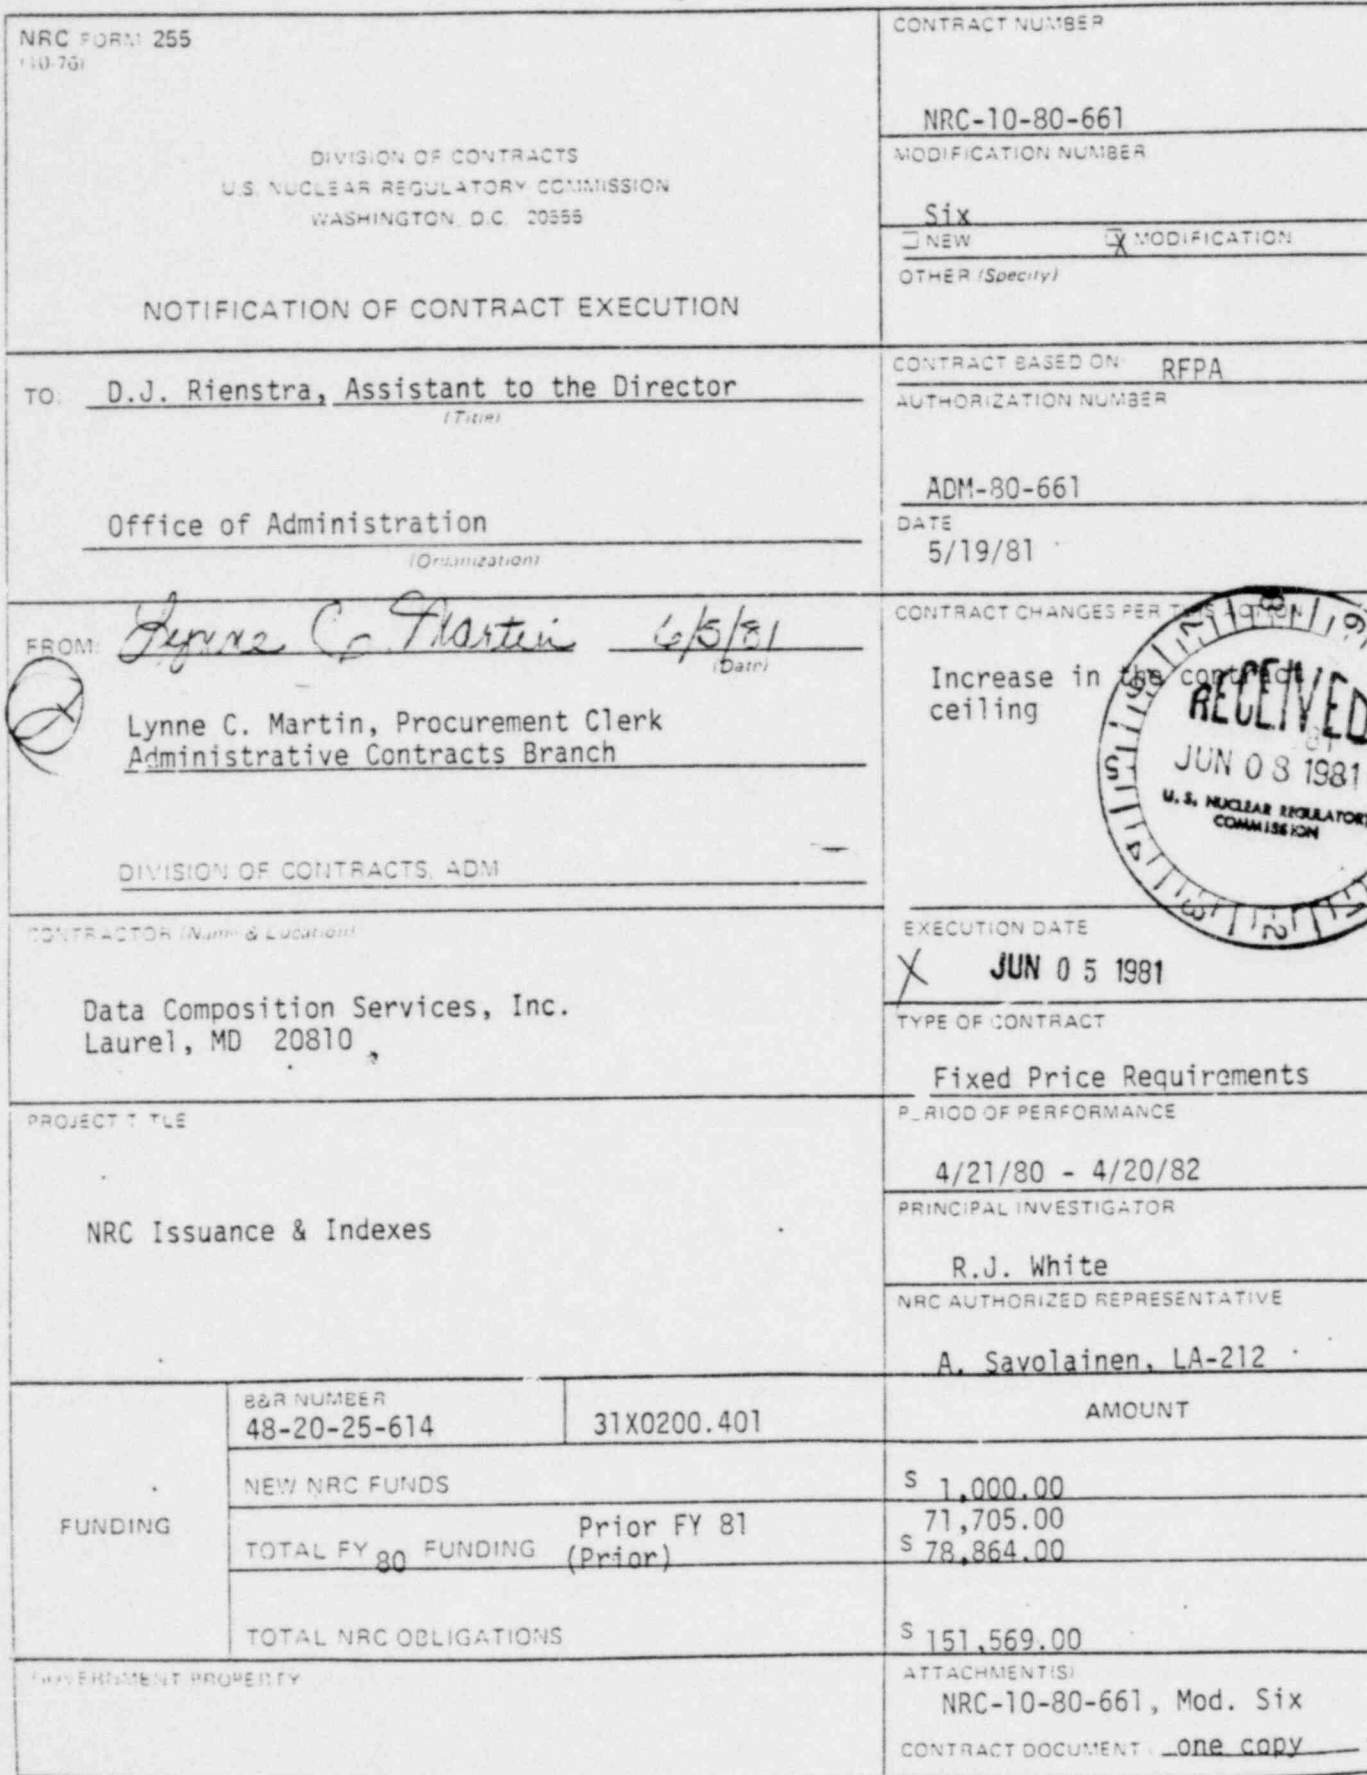 NRC FORM 255
(10-76)
DIVISION OF CONTRACTS
U.S. NUCLEAR REGULATORY COMMISSION
WASHINGTON, D.C. 20555
NOTIFICATION OF CONTRACT EXECUTION
CONTRACT NUMBER
NRC-10-80-661
MODIFICATION NUMBER
Six
NEW X MODIFICATION
OTHER (Specify)
TO: D.J. Rienstra, Assistant to the Director
(Title)
Office of Administration
(Organization)
CONTRACT BASED ON: RFPA
AUTHORIZATION NUMBER
ADM-80-661
DATE
5/19/81
FROM: Lynne C. Martin 6/5/81
(Date)
Lynne C. Martin, Procurement Clerk
Administrative Contracts Branch
DIVISION OF CONTRACTS, ADM
CONTRACT CHANGES PER THIS ACTION
Increase in the contract
ceiling
RECEIVED
JUN 08 1981
U.S. NUCLEAR REGULATORY
COMMISSION
CONTRACTOR (Name & Location)
Data Composition Services, Inc.
Laurel, MD 20810
EXECUTION DATE
X JUN 05 1981
TYPE OF CONTRACT
Fixed Price Requirements
PROJECT TITLE
NRC Issuance & Indexes
PERIOD OF PERFORMANCE
4/21/80 - 4/20/82
PRINCIPAL INVESTIGATOR
R.J. White
NRC AUTHORIZED REPRESENTATIVE
A. Savolainen, LA-212
FUNDING
B&R NUMBER
48-20-25-614 31X0200.401
AMOUNT
NEW NRC FUNDS $ 1,000.00
Prior FY 81 71,705.00
TOTAL FY 80 FUNDING (Prior) $ 78,864.00
TOTAL NRC OBLIGATIONS $ 151,569.00
GOVERNMENT PROPERTY
ATTACHMENT(S)
NRC-10-80-661, Mod. Six
CONTRACT DOCUMENT: one copy